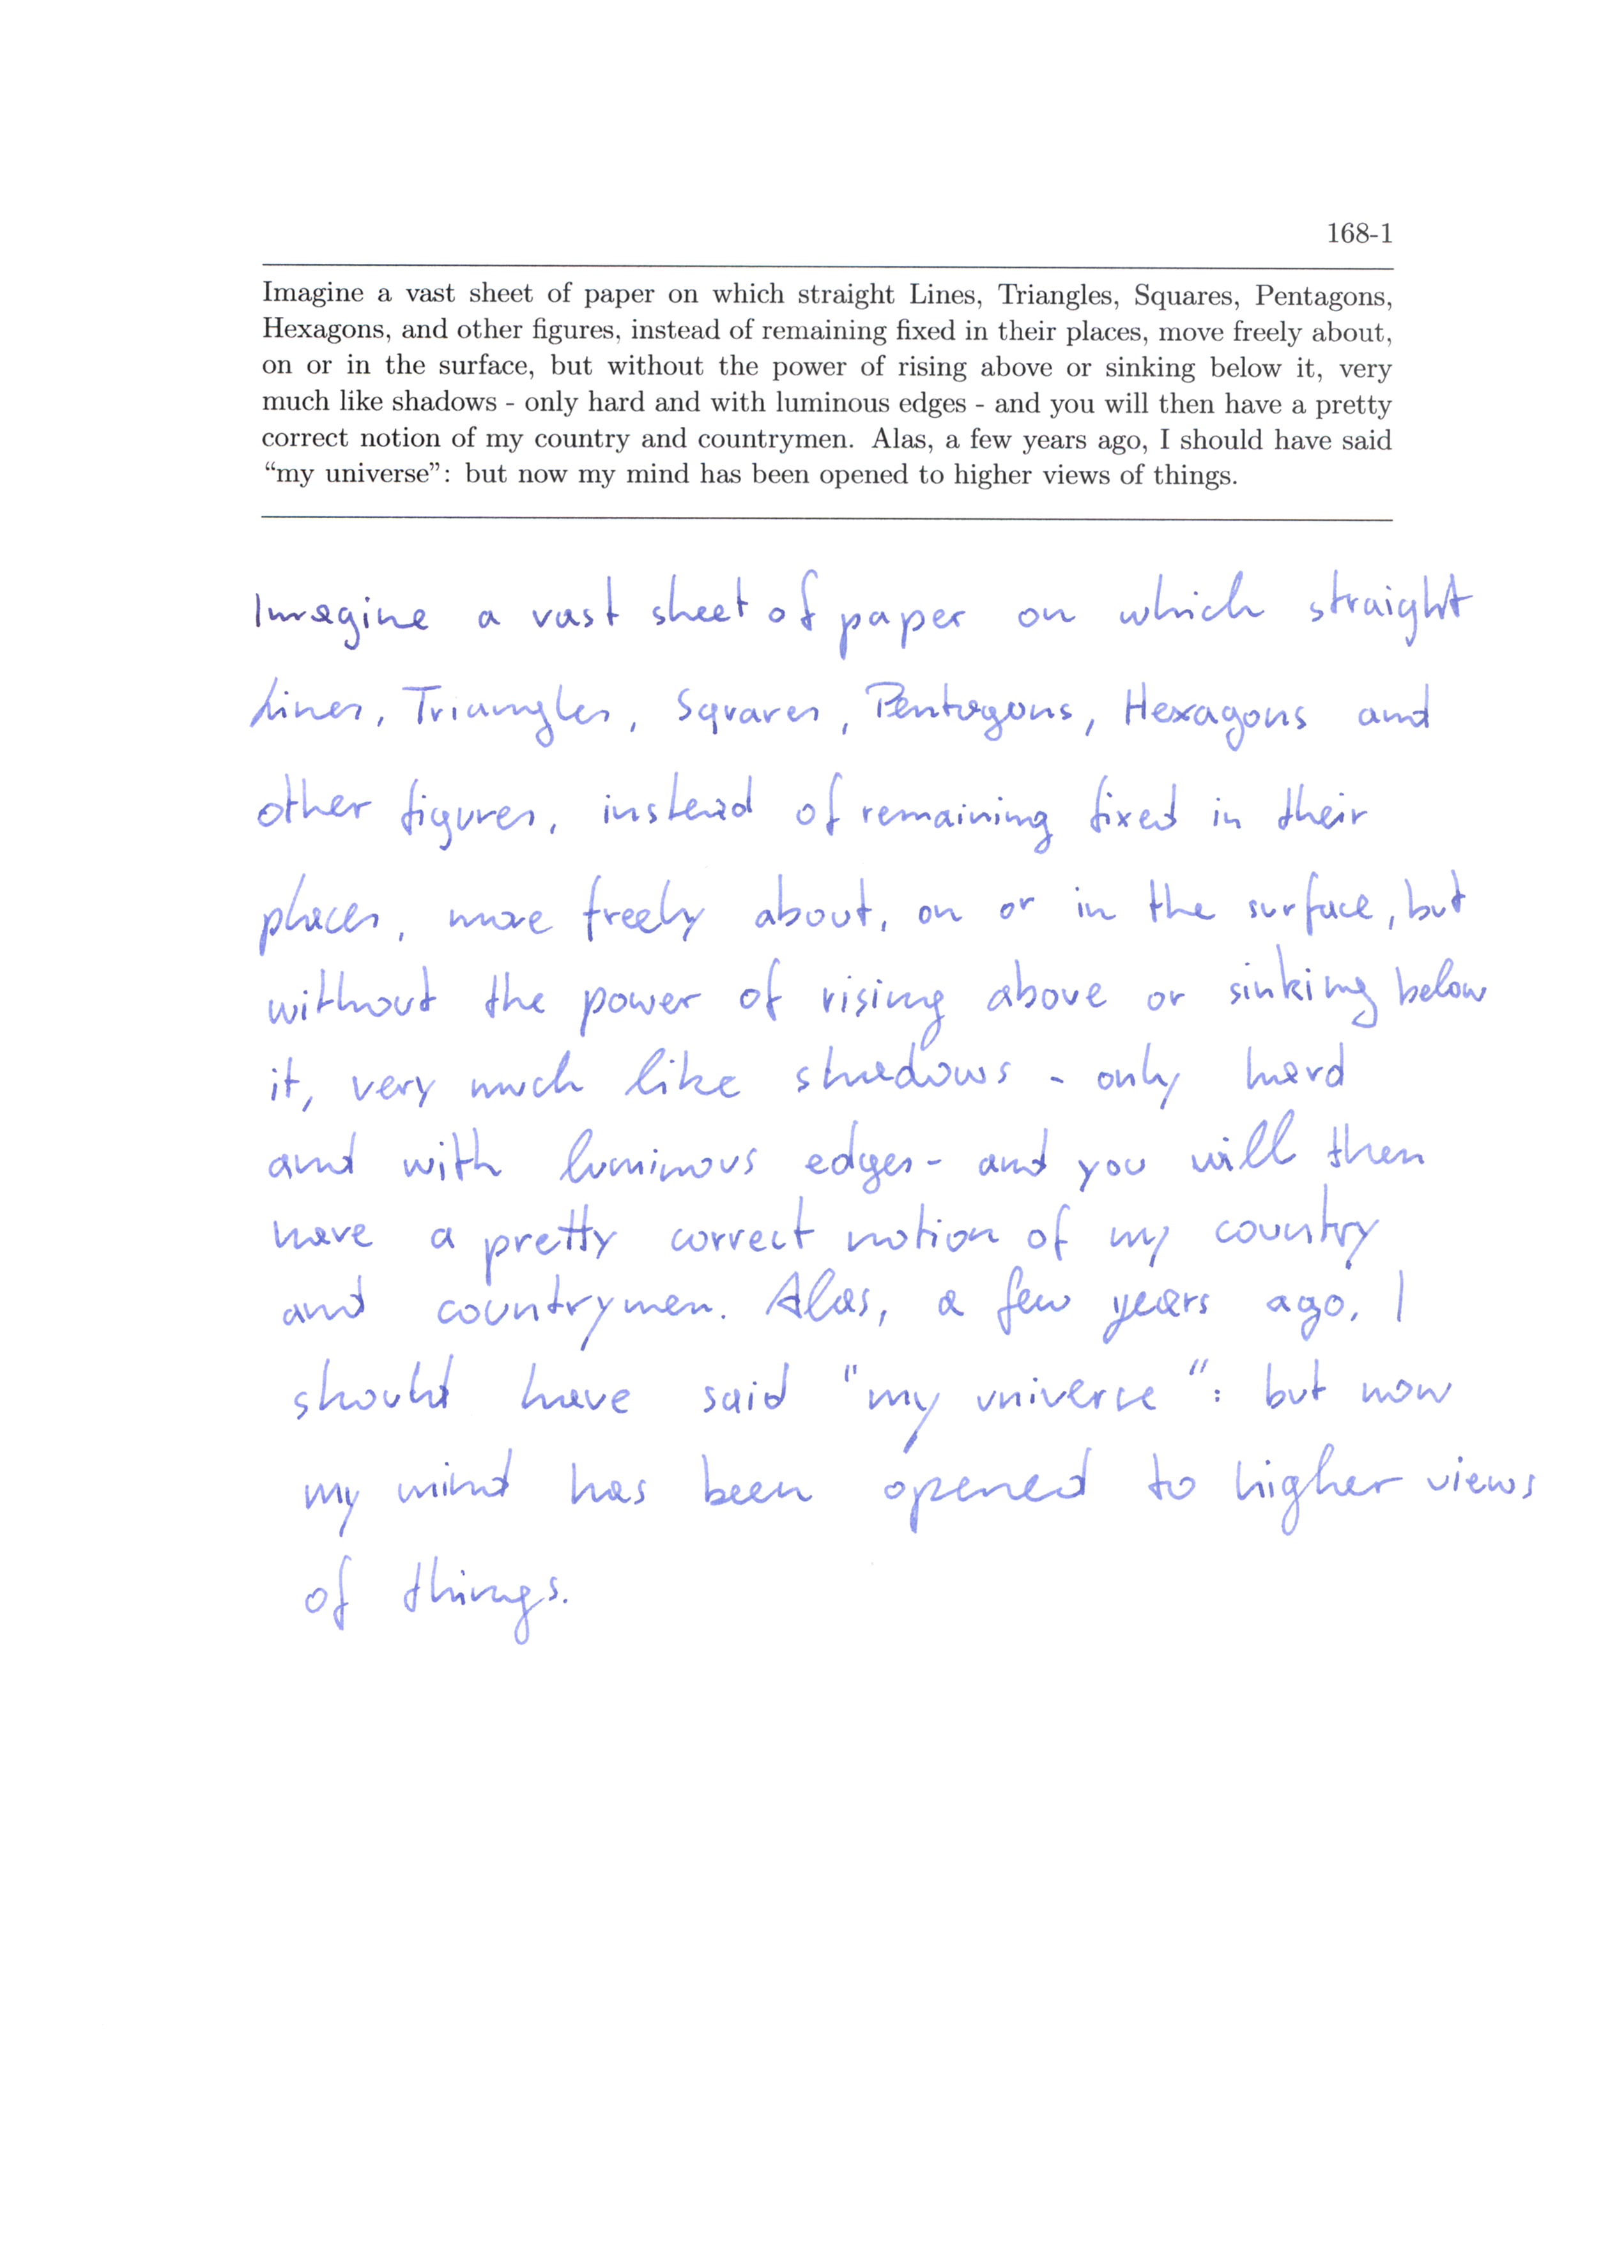 168-1
Imagine a vast sheet of paper on which straight Lines, Triangles, Squares, Pentagons,
Hexagons, and other figures, instead of remaining fixed in their places, move freely about,
on or in the surface, but without the power of rising above or sinking below it, very
much like shadows - only hard and with luminous edges - and you will then have a pretty
correct notion of my country and countrymen. Alas, a few years ago, I should have said
“my universe”: but now my mind has been opened to higher views of things.
Imagine a vast sheet of paper on which straight
Lines, Triangles, Squares, Pentagons, Hexagons and
other figures, instead of remaining fixed in their
places, move freely about, on or in the surface, but
without the power of rising above or sinking below
it, very much like shadows - only hard
and with luminous edges - and you will then
have a pretty correct notion of my country
and countrymen. Alas, a few years ago, I
should have said "my universe": but now
my mind has been opened to higher views
of things.